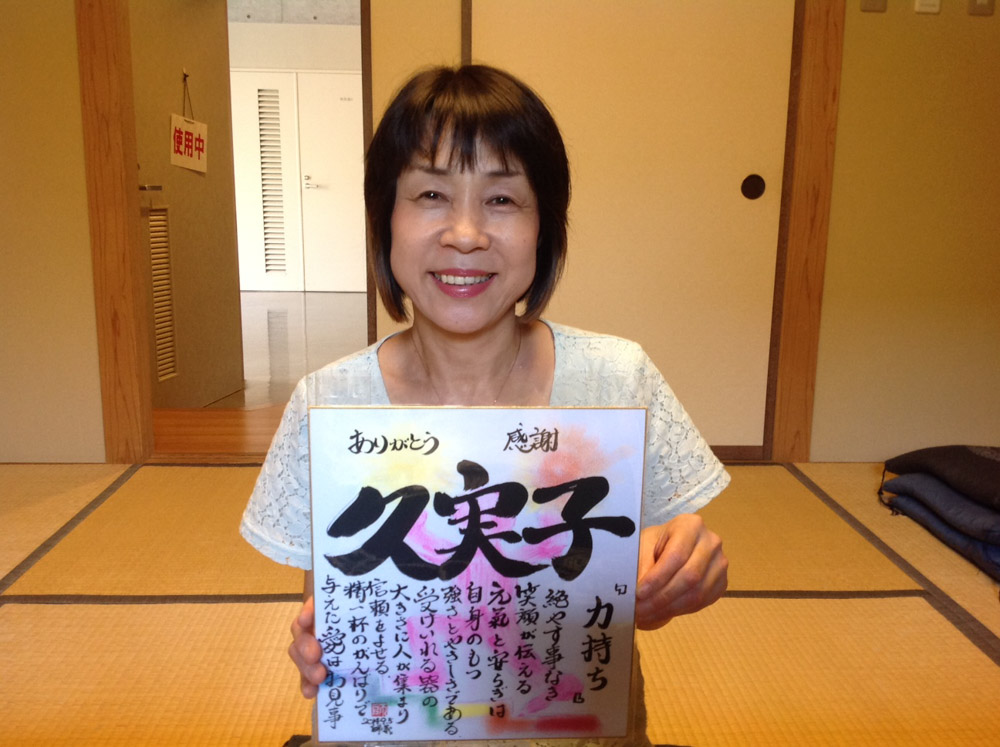 使用中
ありがとう
感謝
久実子
「力持ち」
絶やす事なき
笑顔が伝える
元氣と安らぎは
自身のもつ
強さとやさしさである
受けいれる器の
大きさに人が集まり
信頼をよせる
精一杯のがんばりで
与えた愛はお見事